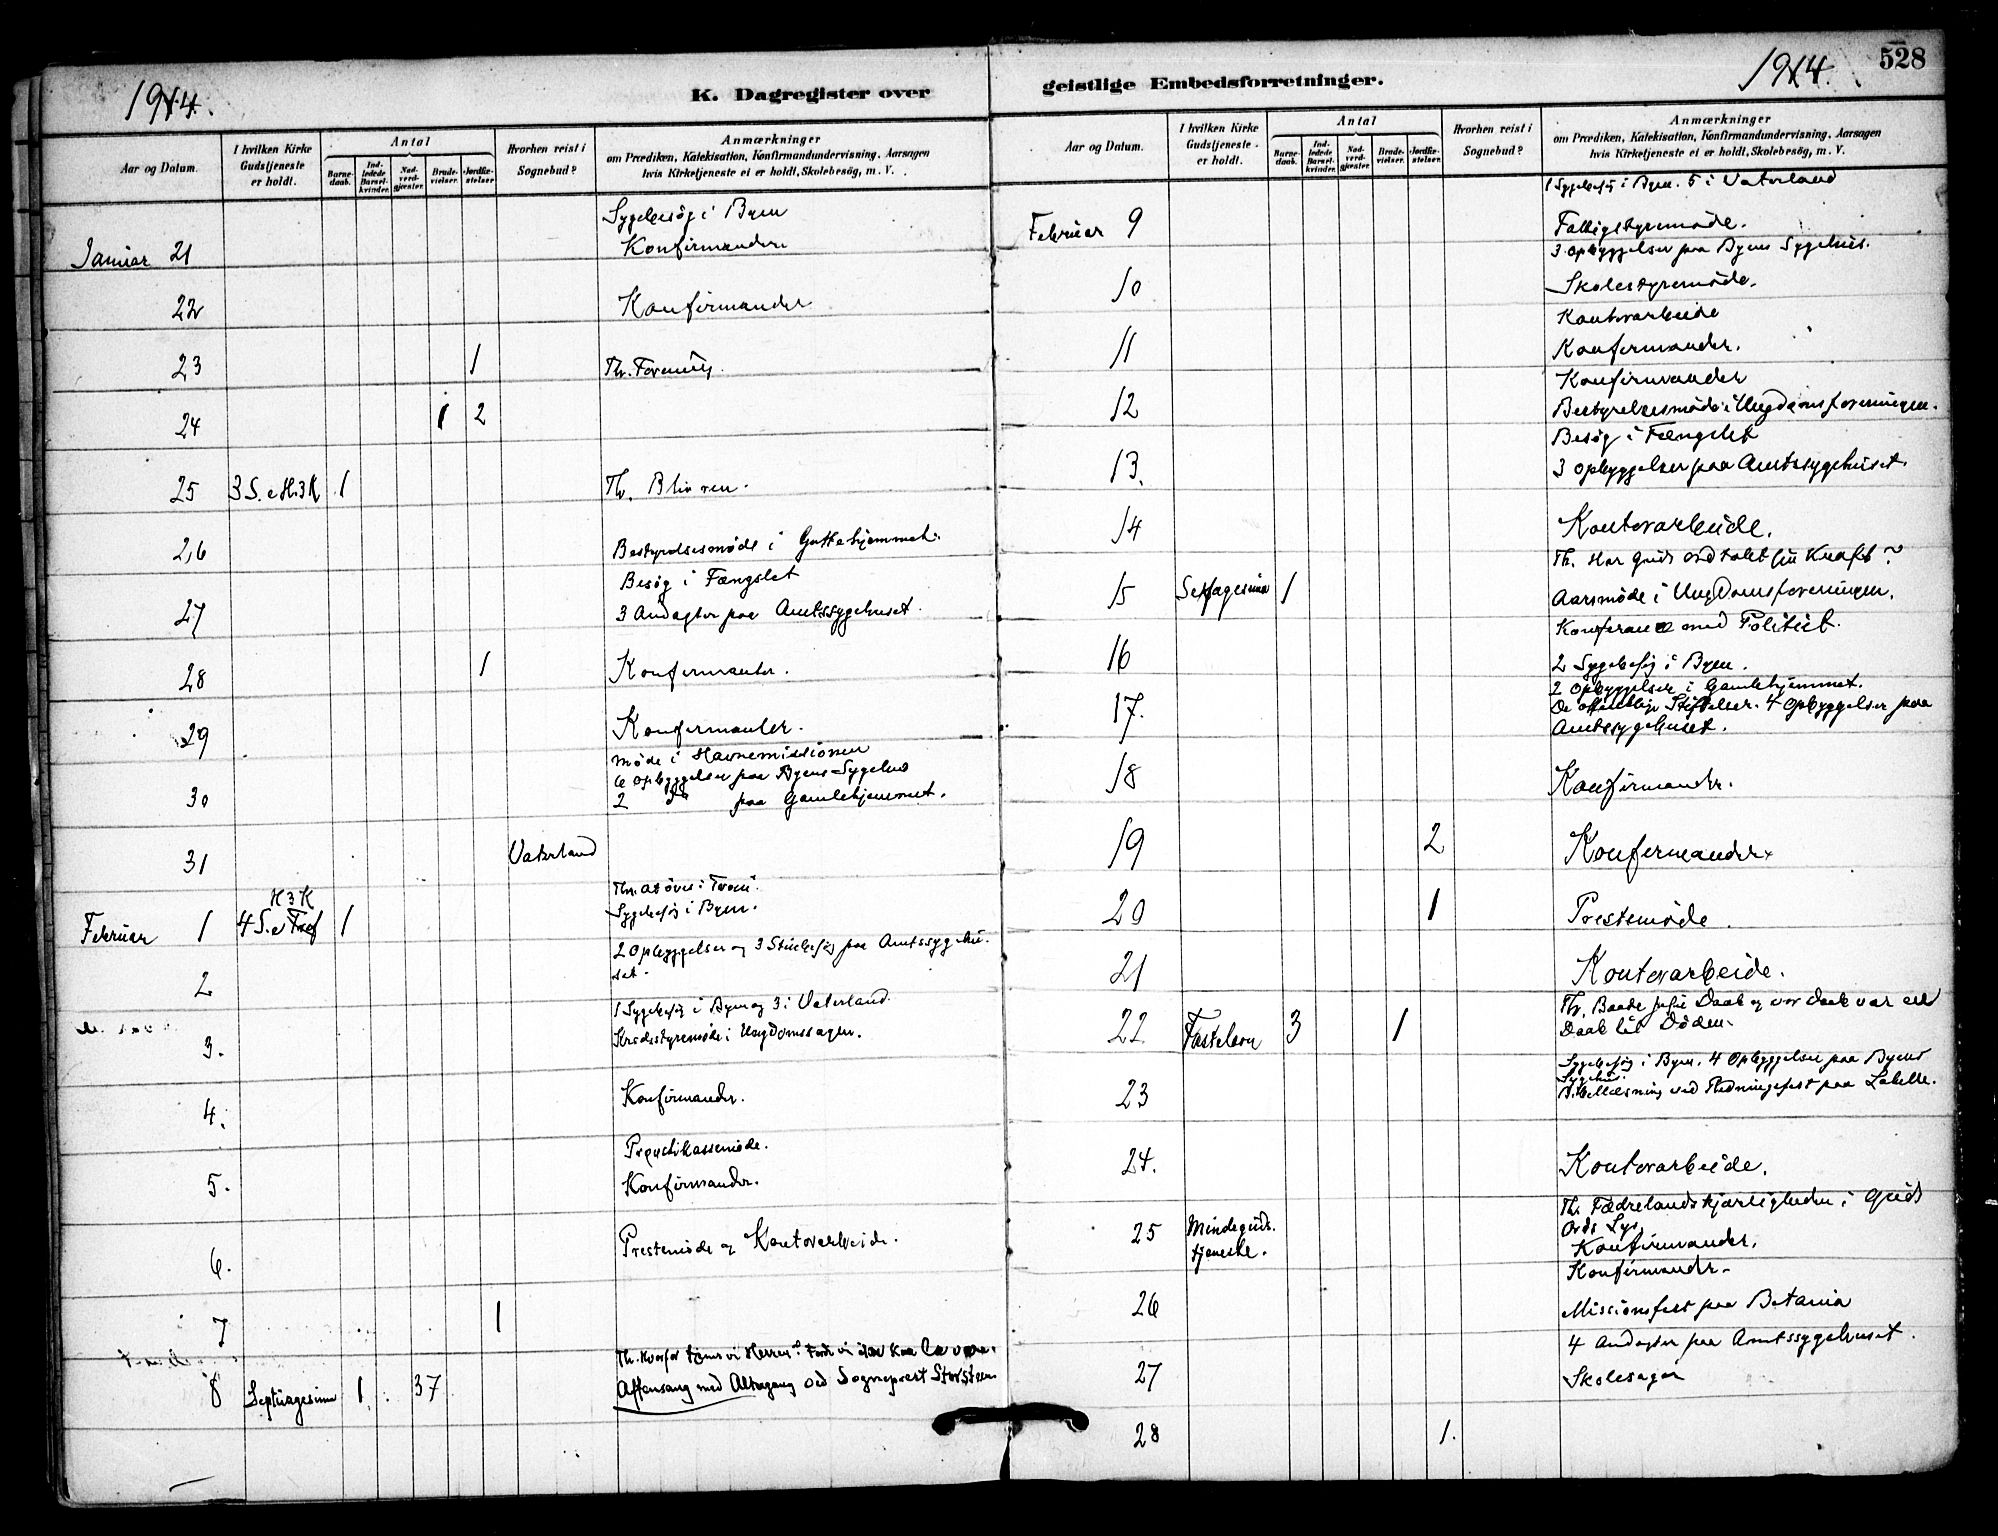 528
1914.
K. Dagregister over
Aar og Datum.
I hvilken Kirke Gudstjeneste er holdt.
Antal
Barnedaab.
Indledede Barselkvinder.
Nadverdgjester.
Brudevielser.
Jordfæstelser.
Hvorhen reist i Sognebud?
Anmærkninger
om Prædiken, Katekisation, Konfirmandundervisning, Aarsagen
hvis Kirketjeneste ei er holdt, Skolebesøg, m. V.
Sygebesøg i Byen
Januar 21 Konfirmander
22 Konfirmander
23 1 Th. Forening.
24 1 2
25 3 S. e H.3K 1 Th.
26 Bestyrelsesmøde i Guttehjemmet.
Besøg i Fængslet
27 3 Andagter paa Amtssygehuset.
28 1 Konfirmanter.
29 Konfirmanter.
Møde i Havnemissionen
6 Opbyggelser paa Byens Sygehus
30 2 do paa Gamlehjemmet.
31 Vaterland
H 3 K
Februar 1 4 S. e 1 Sygebesøg i Byen.
2 Opbyggelser og 3 paa Amtssygehu-
2 set.
1 Sygebesøg i Byen og 3 i Vaterland.
3. Kredsstyremøde i Ungdomssagen.
4. Konfirmander.
5. Konfirmander.
6. Prestemøde og Kontorarbeide.
7 1
Th. Hvorfor tjene vi Herren?
8 Septuagesima 1 37 Aftensang med Altergang ved Sogneprest Storsteen
1914.
geistlige Embedsforretninger.
Aar og Datum.
I hvilken Kirke Gudstjeneste er holdt.
Antal
Barnedaab.
Indledede Barselkvinder.
Nadverdgjester.
Brudevielser.
Jordfæstelser.
Hvorhen reist i Sognebud?
Anmærkninger
om Prædiken, Katekisation, Konfirmandundervisning, Aarsagen
hvis Kirketjeneste ei er holdt, Skolebesøg, m. V.
1 Sygebesøg i Byen. 5 i Vaterland
Februar 9 Fattigstyremøde.
3 Opbyggelser paa Byens Sygehus.
10 Skolestyremøde.
Kontorarbeide
11 Konfirmander.
Konfirmander
12 Bestyrelsesmøde i Ungdomsforeningen.
Besøg i Fængslet
13. 3 Opbyggelser paa Amtssygehuset.
14 Kontorarbeide.
Th. Har Guds ord tabt sin Kraft?
15 Sexagesima 1 Aarsmøde i Ungdomsforeningen.
Konferance med Politiet.
16 2 Sygebesøg i Byen.
2 Opbyggelser i Gamlehjemmet.
17. De offentlige Stiftelser. 4 Opbyggelser paa
Amtssygehuset.
18 Konfirmander.
19 2 Konfirmander
20 1 Prestemøde.
21 Kontorarbeide.
Th. Baade Jesu Daab og vor daab var en
22. Fastelavn 3 1 Daab til Døden.
Sygebesøg i Byen. 4 Opbyggelser paa Byens
Sygehus.
23 Bibellæsning ved paa
24. Kontorarbeide.
Th. Fædrelandskjærligheden i Guds
25 Mindeguds- Ords Lys
tjeneste. Konfirmander.
Konfirmander.
26 Missionsfest paa Betania
4 Andagter paa Amtssygehuset.
27 Skolesager
28 1.